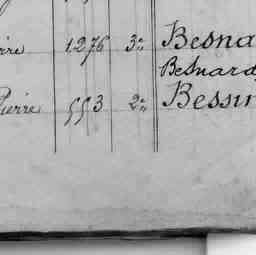 rre 1276 3°: Besna
Besnard
Pierre 553 2°: Bessin